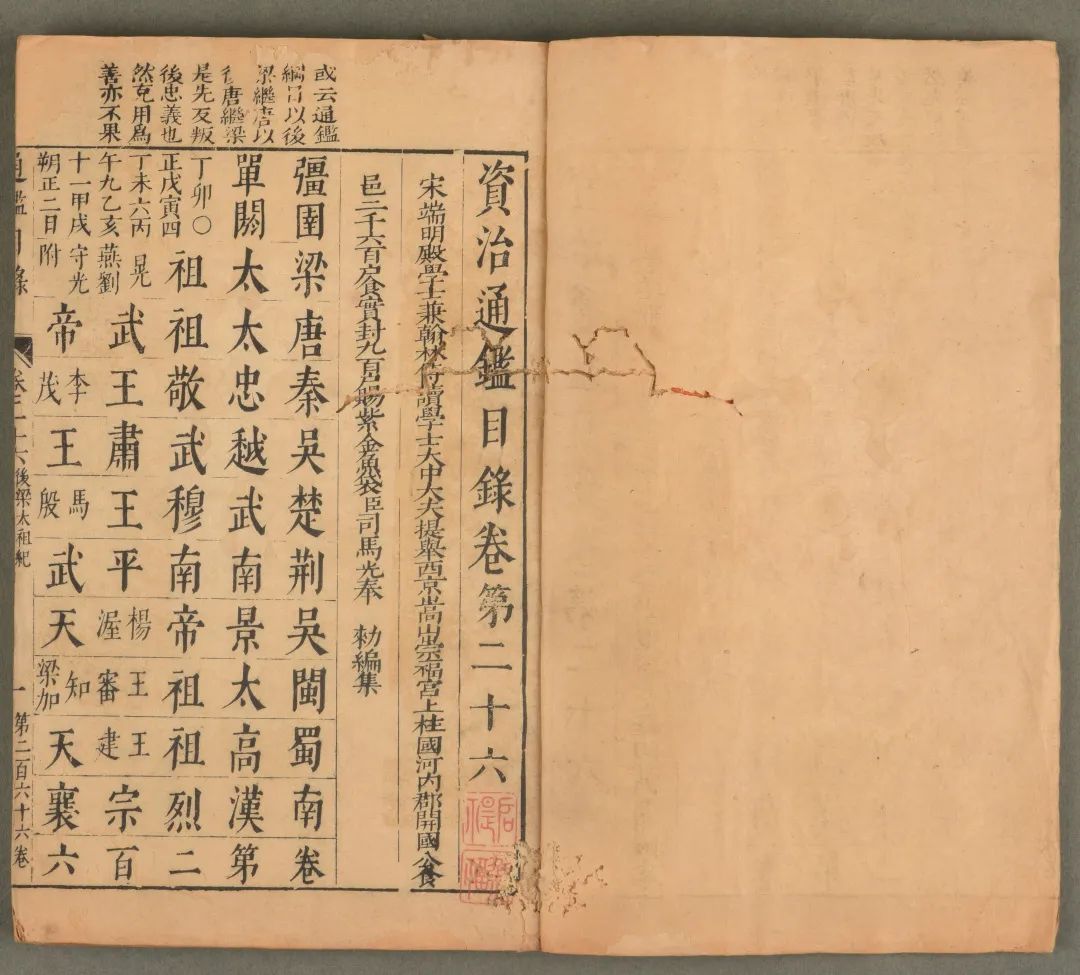 或云通鑑
綱目以後
梁繼唐以
後唐繼梁
是先反叛
後忠義也
然克用為
善亦不果
資治通鑑目錄卷第二十六
宋端明殿學士兼翰林侍讀學士大中大夫提舉西京嵩山崇福宮上柱國河內郡開國公食
邑二千六百戶食實封九百戶賜紫金魚袋臣司馬光奉 勑編集
彊圉梁唐秦吳楚荆吳閩蜀南卷
單閼太太忠越武南景太高漢第
丁卯〇
正戊寅四
祖祖敬武穆南帝祖祖烈二
丁未六丙
午九乙亥
晃
燕劉
武王肅王平
楊
渥
王
審
王
建
宗百
十一甲戌
朔正二日
守光
附
帝
李
茂
王
馬
殷
武天
知
梁加
天襄六
通鑑目錄
卷二十六
後梁太祖紀
一
第二百六十六卷